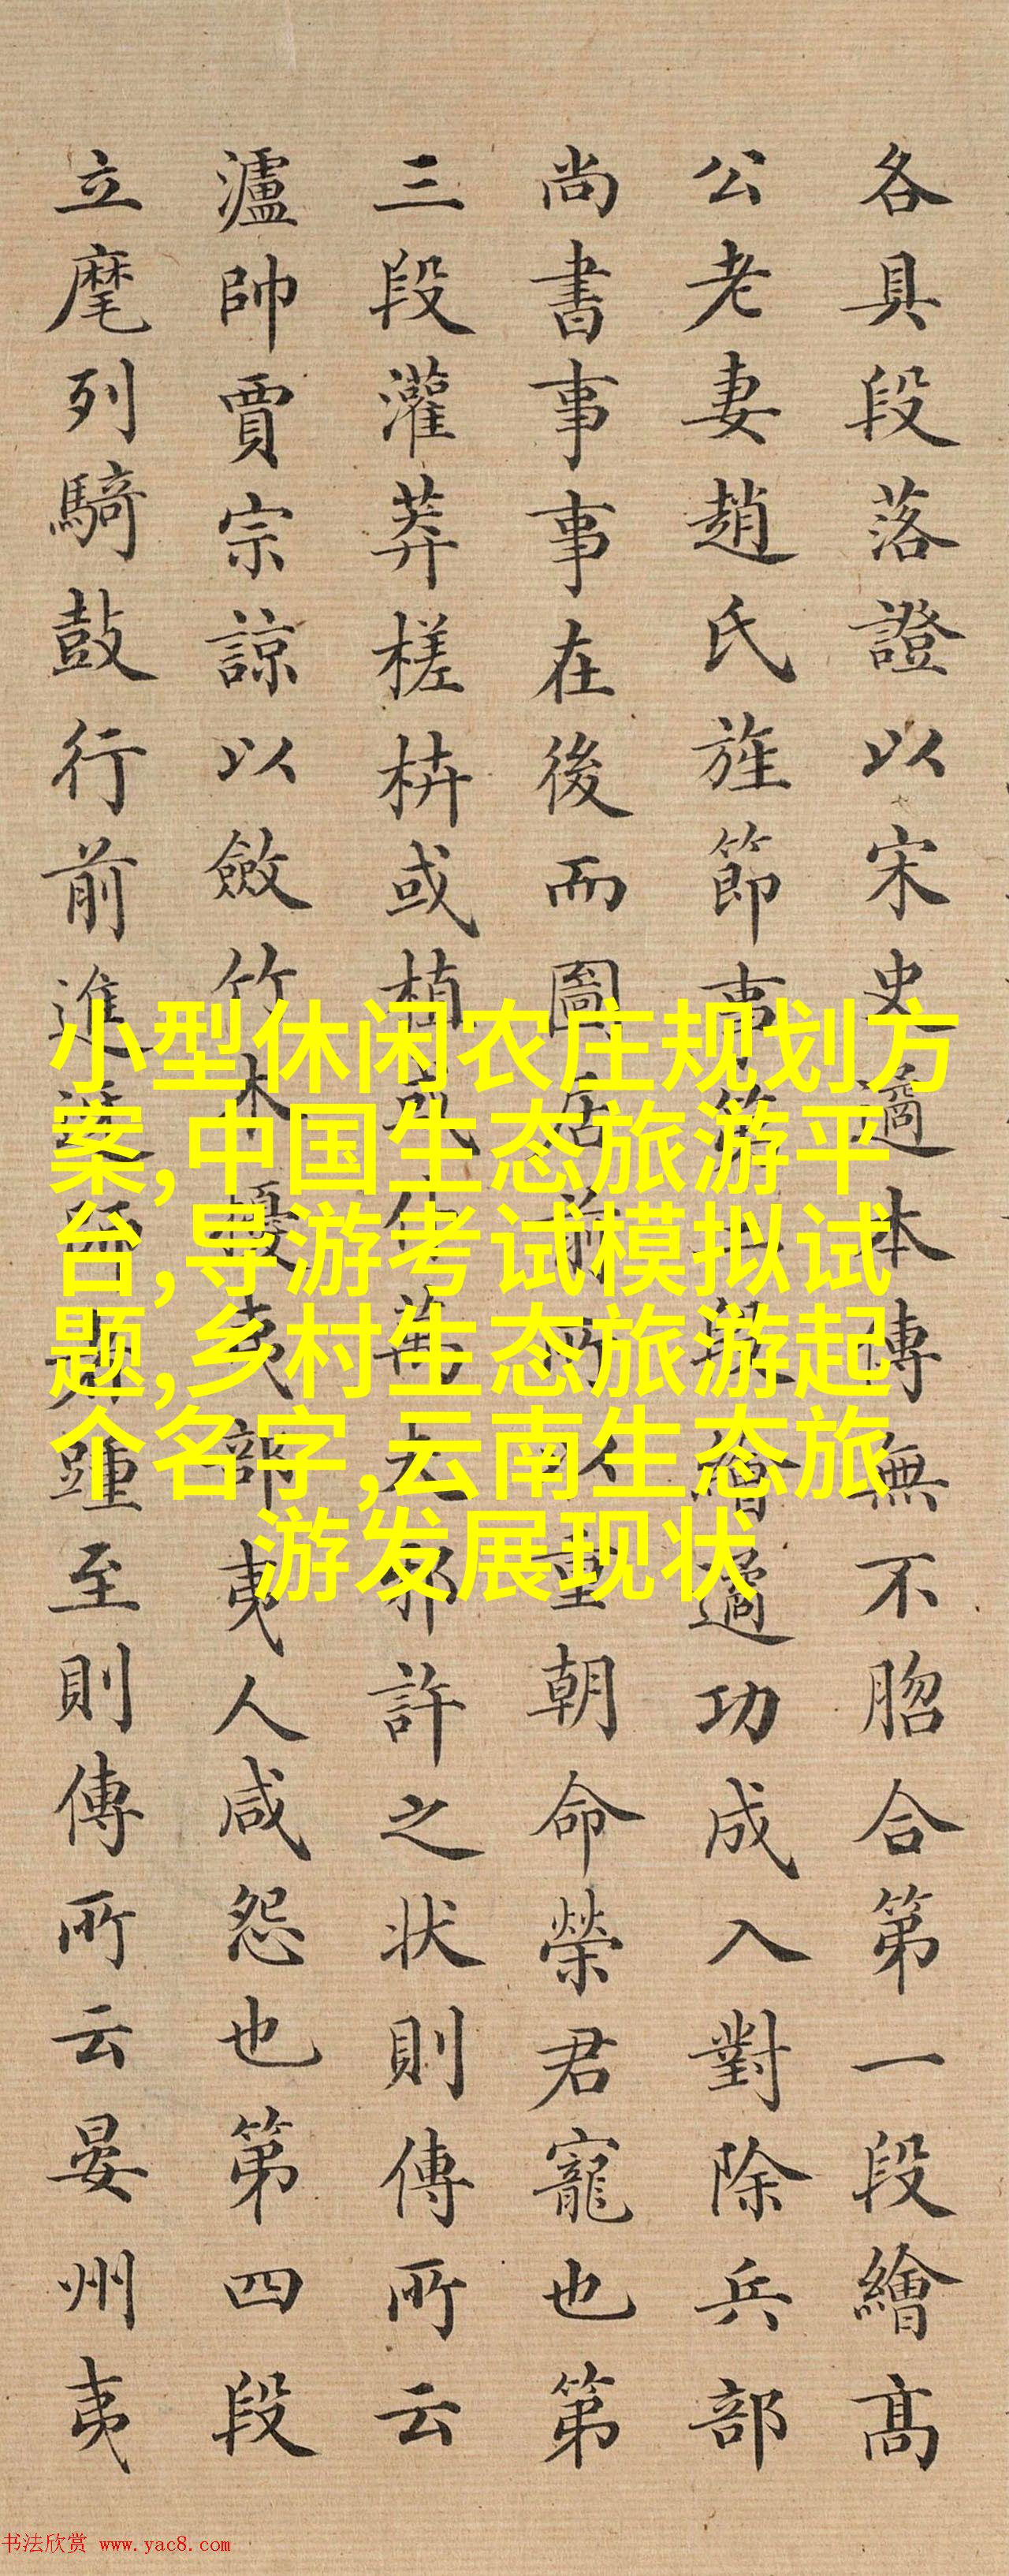 各具段落證以宋史適本傳無不脗合第一段繪高
公老妻趙氏旌節事第二段繪適功成入對除兵部
尚書事事在後而圖居前所以重朝命榮君寵也第
三段灌莽槎枿或植或仆萬夫邪許之状則傳所云
瀘帥賈宗諒以斂竹木擾夷部夷人咸怨也第四段
立麾列騎鼓行前進 至則傳所云晏州夷
小型休闲农庄规划方
案,中国生态旅游平
台,导游考试模拟试
题,乡村生态旅游起
个名字,云南生态旅
游发展现状
书法欣赏 www.yac8.com